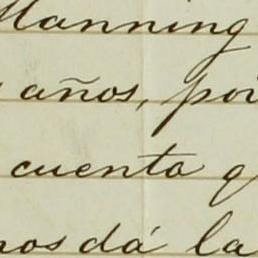 Manning
años, por
cuenta q
nos dá la